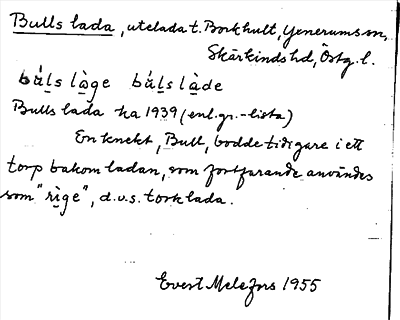 Bulls lada, utelada t. Borkhult, Yxnerums sn,
Skärkinds hd, Östg.l.
bu̇ls lȧ̀ge bu̇ls lȧ̀de
Bulls lada ha 1939 (enl. gr.-lista)
En knekt, Bull, bodde tidigare i ett
torp bakom ladan, som fortfarande användes
som "rige", d.v.s. torklada.
Evert Melefors 1955